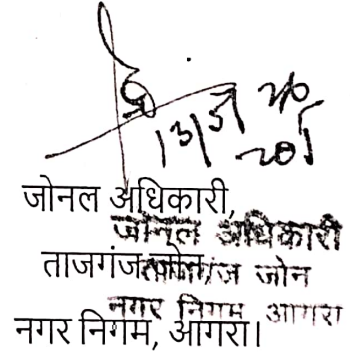 13/5/
जोनल अधिकारी,
जोनल अधिकारी
ताजगंज जोन,
ताजगंज जोन
नगर निगम आगरा
नगर निगम, आगरा।